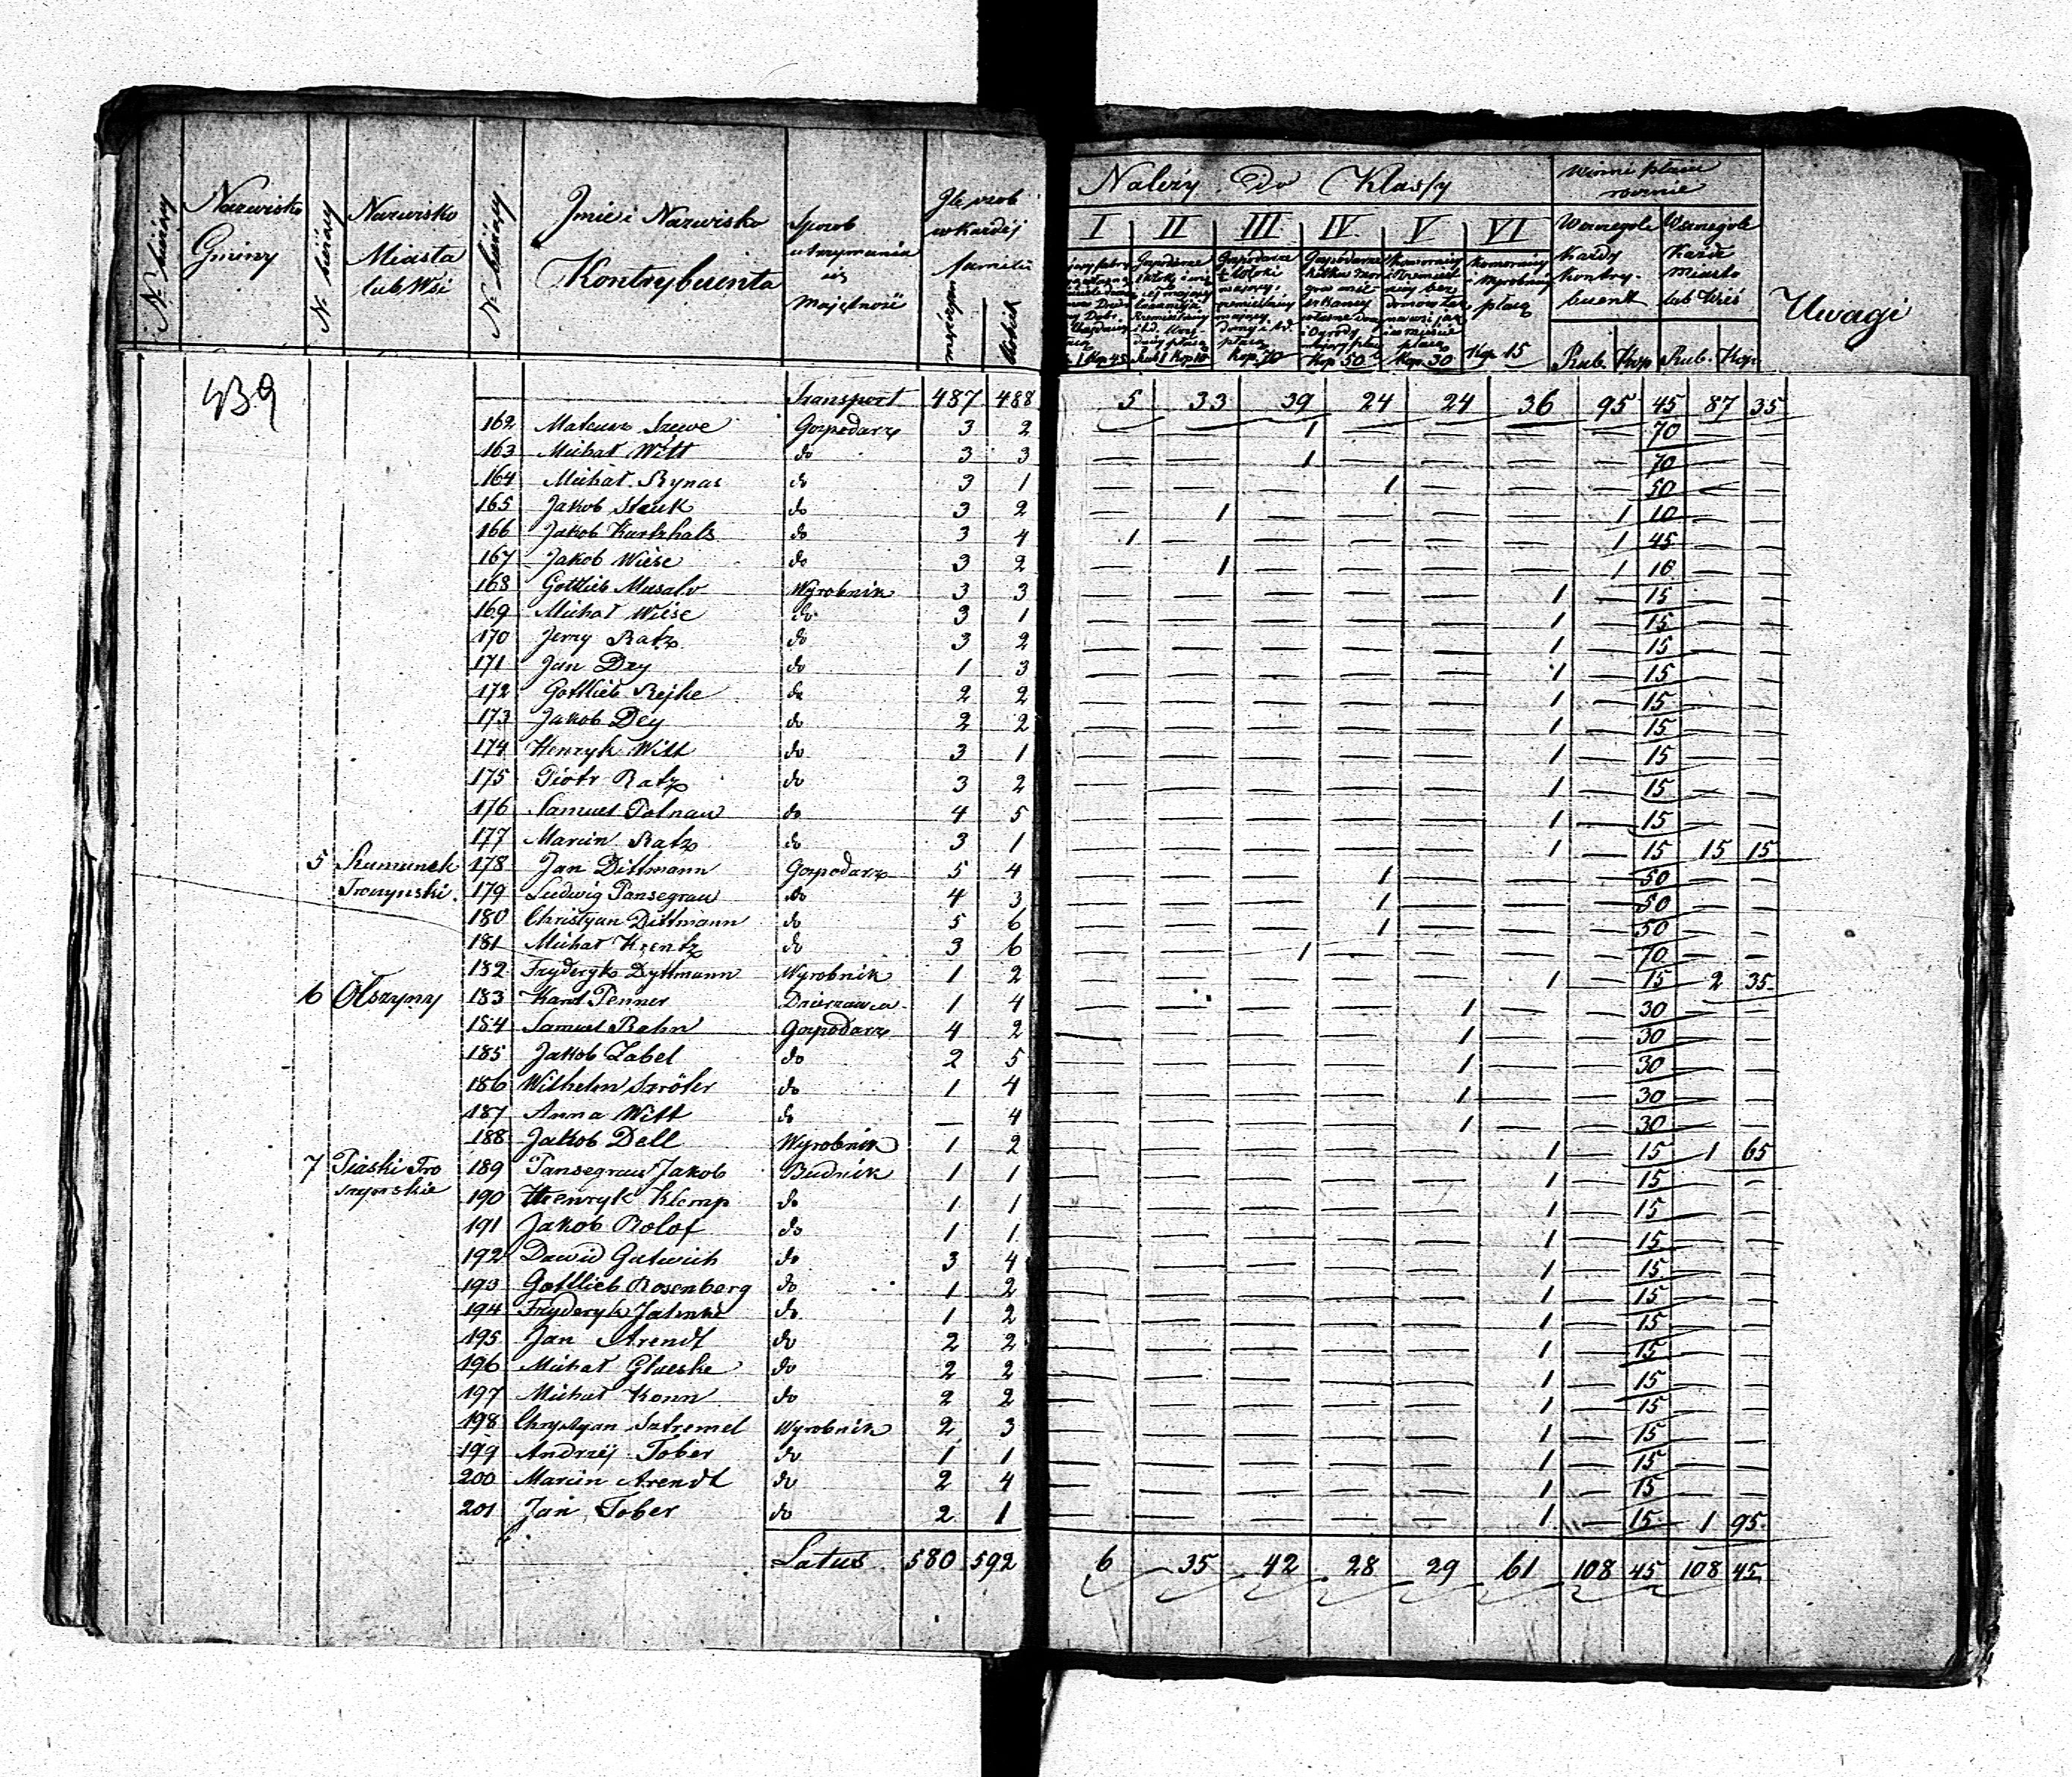 N. bieżący | Nazwisko Gminy | N. bieżący | Nazwisko Miasta lub Wsi | N. bieżący | Jmie i Nazwisko Kontrybuenta | Sposob utrzymania się Majętność | Jle osob w każdej familii | męzczyzn | kobiet | Należy do Klassy | I | II | III | IV | V | VI | Winni płacić rocznie | Wszczegole każdy kontrybuent | Wszczegole każde miasto lub Wieś | Rub. | Kop | Rub. | Kop. | Uwagi
1 Kop 45 | Rub 1 Kop 10 | Kop. 70 | Kop 50 | Kop. 30 | Kop 15
439 Transport 487 488 5 33 39 24 24 36 95 45 87 35
162 Mateusz Szewe Gospodarz 3 2 — — 1 — — — — 70 — —
163 Michał Witt do 3 3 — — 1 — — — — 70 — —
164 Michał Rynas do 3 1 — — — 1 — — — 50 — —
165 Jakob Stauk do 3 2 — 1 — — — — 1 10 — —
166 Jakob Kurtzhals do 3 4 1 — — — — — 1 45 — —
167 Jakob Wiese do 3 2 — 1 — — — — 1 10 — —
168 Gottlieb Musalv Wyrobnik 3 3 — — — — — 1 — 15 — —
169 Michał Wiese do 3 1 — — — — — 1 — 15 — —
170 Jerzy Ratz do 3 2 — — — — — 1 — 15 — —
171 Jan Dey do 1 3 — — — — — 1 — 15 — —
172 Gottlieb Rejke do 2 2 — — — — — 1 — 15 — —
173 Jakob Dey do 2 2 — — — — — 1 — 15 — —
174 Henryk Witt do 3 1 — — — — — 1 — 15 — —
175 Piotr Ratz do 3 2 — — — — — 1 — 15 — —
176 Samuel Polnau do 4 5 — — — — — 1 — 15 — —
177 Marcin Ratz do 3 1 — — — — — 1 — 15 15 15
5 Rumunek 178 Jan Dittmann Gospodarz 5 4 — — — 1 — — — 50 — —
Troszynski. 179 Ludwig Pansegrau do 4 3 — — — 1 — — — 50 — —
180 Christyan Dittmann do 5 6 — — — 1 — — — 50 — —
181 Michał Krentz do 3 6 — — 1 — — — — 70 — —
182 Fryderyk Dyttmann Wyrobnik 1 2 — — — — — 1 — 15 2 35
6 Olszyny 183 Karol Penner Dzierzawca 1 4 — — — — 1 — — 30 — —
184 Samuel Rahn Gospodarz 4 2 — — — — 1 — — 30 — —
185 Jakob Zabel do 2 5 — — — — 1 — — 30 — —
186 Wilhelm Szröter do 1 4 — — — — 1 — — 30 — —
187 Anna Witt do — 4 — — — — 1 — — 30 — —
188 Jakob Dell Wyrobnik 1 2 — — — — — 1 — 15 1 65
7 Piaski Tro 189 Pansegrau Jakob Budnik 1 1 — — — — — 1 — 15 — —
szynskie 190 Henryk Klemp do 1 1 — — — — — 1 — 15 — —
191 Jakob Rolof do 1 1 — — — — — 1 — 15 — —
192 Dawid Gutwich do 3 4 — — — — — 1 — 15 — —
193 Gottlieb Rosenberg do 1 2 — — — — — 1 — 15 — —
194 Fryderyk Jahnke do 1 2 — — — — — 1 — 15 — —
195 Jan Arendt do 2 2 — — — — — 1 — 15 — —
196 Michał Glaeske do 2 2 — — — — — 1 — 15 — —
197 Michał Konn do 2 2 — — — — — 1 — 15 — —
198 Chrystyan Sztremel Wyrobnik 2 3 — — — — — 1 — 15 — —
199 Andrzej Tober do 1 1 — — — — — 1 — 15 — —
200 Marcin Arendt do 2 4 — — — — — 1 — 15 — —
201 Jan Tober do 2 1 — — — — — 1 — 15 1 95
Latus 580 592 6 35 42 28 29 61 108 45 108 45